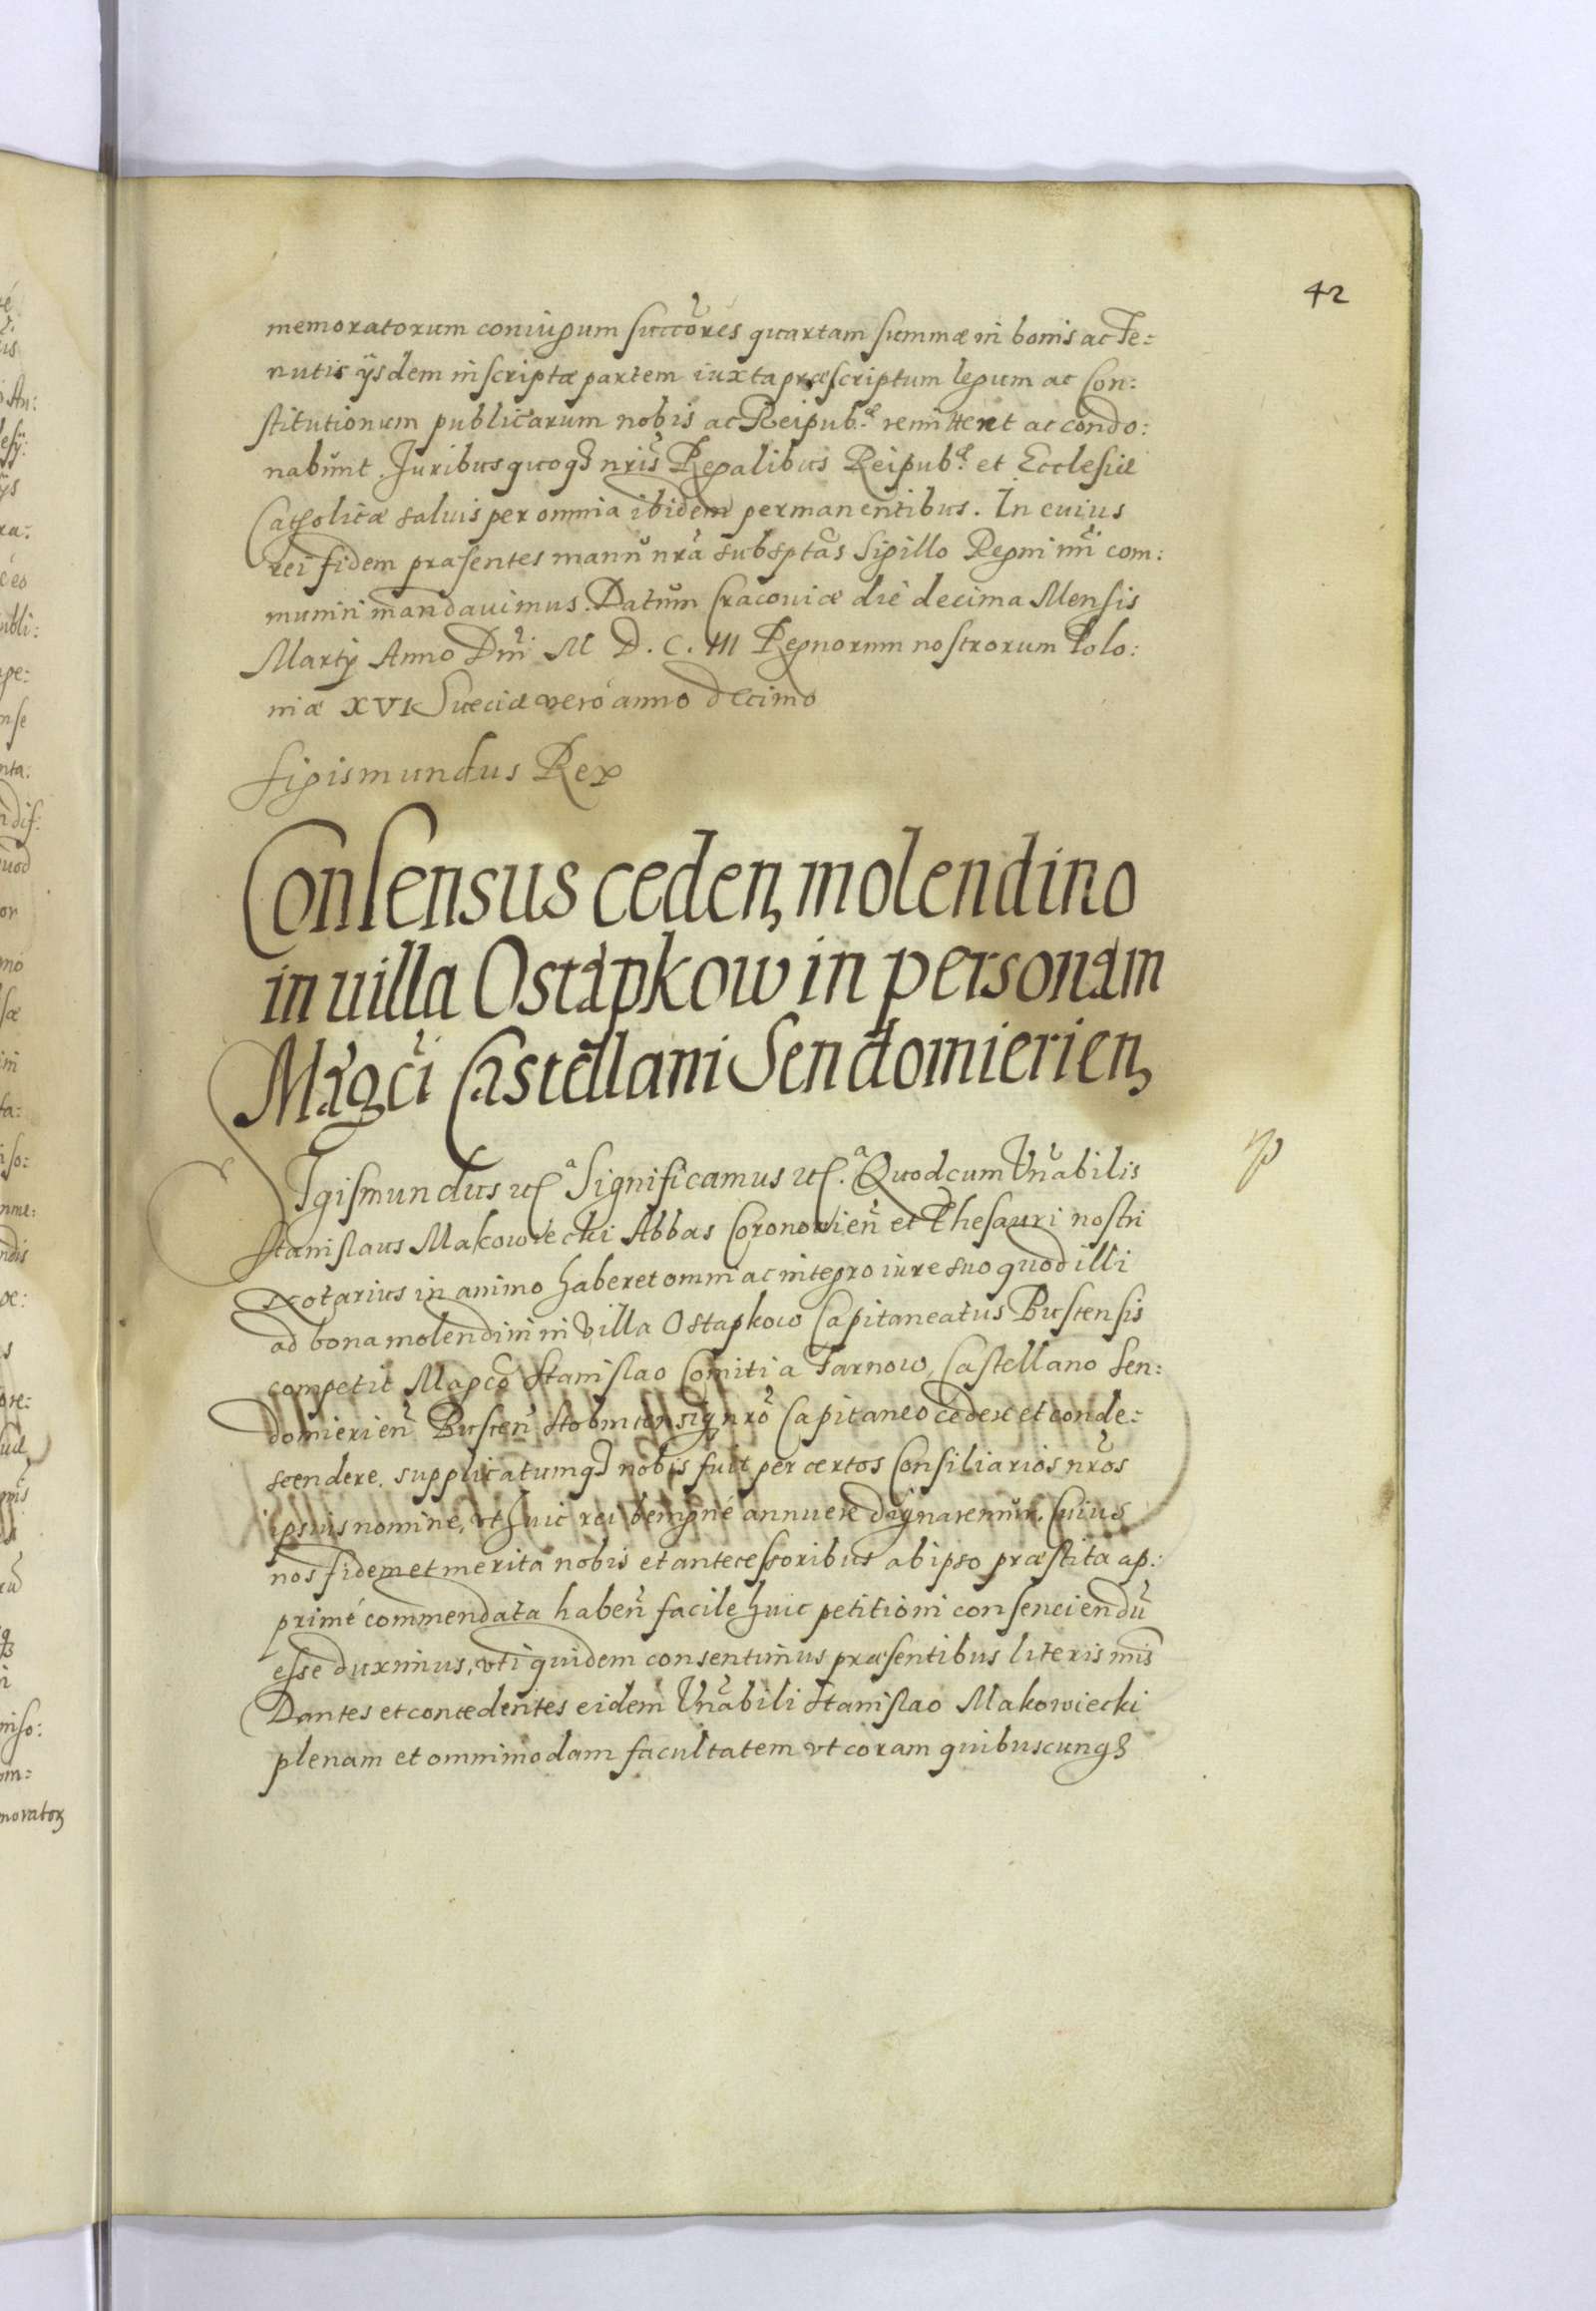 42
memoratorum coniugum succores quartam summæ in bonis ac Te:
nutis ijsdem inscriptæ partem iuxta præscriptum legum ac Con:
stitutionum publicarum nobis ac Reipub.æ remittent ac condo:
nabunt. Juribus quoq3 nris Regalibus Reipub.æ et Ecclesiæ
Catholicæ saluis per omnia ibidem permanentibus. In cuius
rei fidem præsentes manu nra subsptas Sigillo Regni nri com:
muniri mandauimus. Datum Cracouiæ die decima Mensis
Martij Anno Dni M D. C. III Regnorum nostrorum Polo:
niæ XVI Sueciæ vero anno decimo
Sigismundus Rex
Consensus ceden, molendino
in uilla Ostapkow in personam
Magci Castellani Sendomierien,
Sigismundus etc.a Significamus etc.a Quod cum Vnabilis
Stanislaus Makowiecki Abbas Coronowien et Thesauri nostri
Notarius in animo haberet omni ac integro iure suo quod illi
ad bona molendini in Villa Ostapkow Capitaneatus Buscensis
competit Magco Stanislao Comiti a Tarnow, Castellano Sen:
domierien Buscen Stobnicensiq3 nro Capitaneo cedere et conde:
scendere. supplicatumq3 nobis fuit per certos Consiliarios nros
ipsius nomine, vt huic rei benigné annuere dignaremur. Cuius
nos fidem et merita nobis et antecessoribus ab ipso præstita ap:
primé commendata haben facile huic petitioni consenciendu
esse duximus, vti quidem consentimus præsentibus literis nris
Dantes et concedentes eidem Vnabili Stanislao Makowiecki
plenam et omnimodam facultatem vt coram quibuscunq3